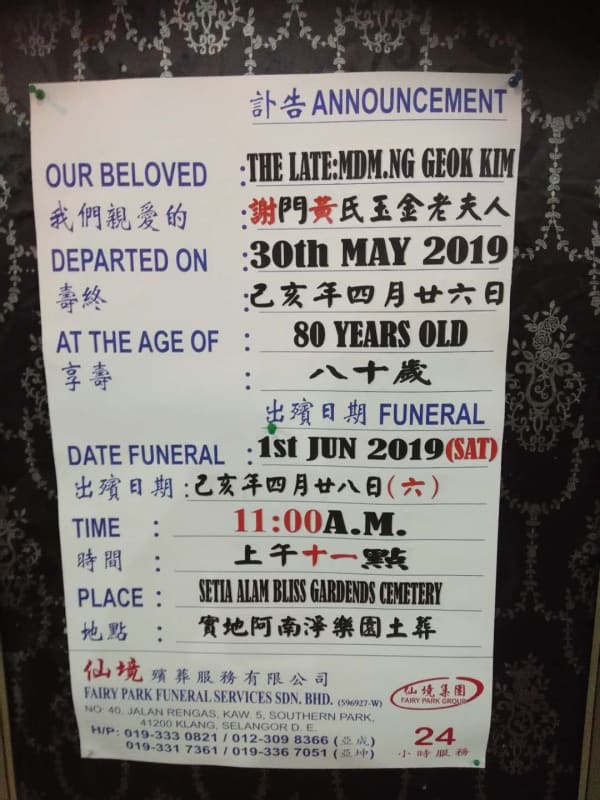 訃告 ANNOUNCEMENT
OUR BELOVED : THE LATE:MDM.NG GEOK KIM
我們親愛的 : 謝門黃氏玉金老夫人
DEPARTED ON : 30th MAY 2019
壽終 : 己亥年四月廿六日
AT THE AGE OF : 80 YEARS OLD
享壽 : 八十歲
出殯日期 FUNERAL
DATE FUNERAL : 1st JUN 2019(SAT)
出殯日期 : 己亥年四月廿八日(六)
TIME : 11:00A.M.
時間 : 上午十一點
PLACE : SETIA ALAM BLISS GARDENDS CEMETERY
地點 : 實地阿南淨樂園土葬
仙境 殯葬服務有限公司
FAIRY PARK FUNERAL SERVICES SDN. BHD. (596927-W)
NO: 40, JALAN RENGAS, KAW. 5, SOUTHERN PARK,
41200 KLANG, SELANGOR D. E.
H/P: 019-333 0821 / 012-309 8366 (亞成)
019-331 7361 / 019-336 7051 (亞坤)
仙境集團
FAIRY PARK GROUP
24
小時服務